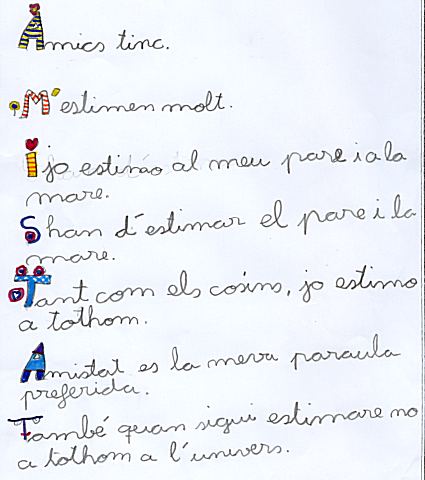 Amics tinc.
M'estimen molt.
I jo estimo al meu pare i a la
mare.
Shan d'estimar el pare i la
mare.
Tant com els cosins, jo estimo
a tothom.
Amistat es la meva paraula
preferida.
També quan sigui estimare no
a tothom a l'univers.